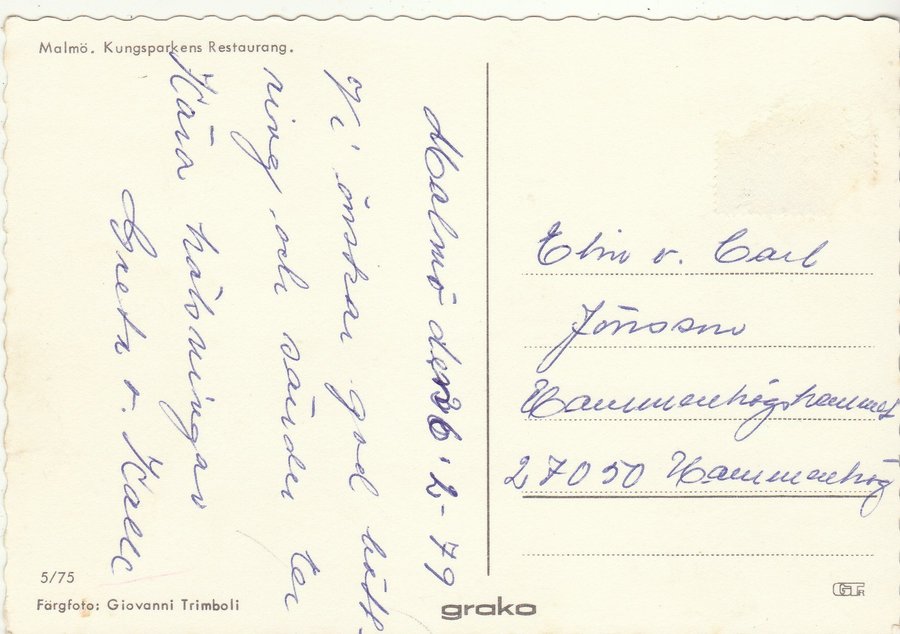 Malmö. Kungsparkens Restaurang.
Malmö den 26.2-79
Vi önskar god bätt-
ring, och sänder Er
Kära hälsningar
Greta o. Kalle
Elin o. Carl
Jönsson
Hammenhögshemmet
27050 Hammenhög
5/75
Färgfoto: Giovanni Trimboli
grako